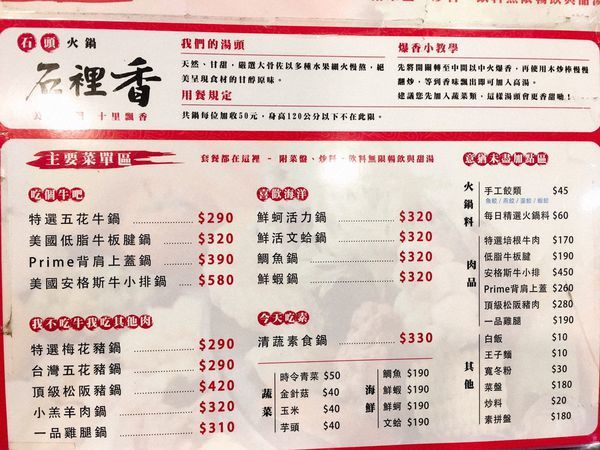 石頭 火鍋
石裡香
十里飄香
我們的湯頭
天然、甘甜,嚴選大骨佐以多種水果細火慢熬,絕
美呈現食材的甘醇原味。
用餐規定
共鍋每位加收50元,身高120公分以下不在此限。
爆香小教學
先將開關轉至中間以中火爆香,再使用木炒棒慢慢
翻炒,等到香味飄出即可加入高湯。
建議您先加入蔬菜類,這樣湯頭會更香甜喲!
主要菜單區
套餐都在這裡 - 附菜盤、炒料、飲料無限暢飲與甜湯
吃個牛吧
特選五花牛鍋 $290
美國低脂牛板腱鍋 $320
Prime背肩上蓋鍋 $390
美國安格斯牛小排鍋 $580
我不吃牛我吃其他肉
特選梅花豬鍋 $290
台灣五花豬鍋 $290
頂級松阪豬鍋 $420
小羔羊肉鍋 $320
一品雞腿鍋 $310
喜歡海洋
鮮蚵活力鍋 $320
鮮活文蛤鍋 $320
鯛魚鍋 $320
鮮蝦鍋 $320
今天吃素
清蔬素食鍋 $330
蔬菜
時令青菜 $50
金針菇 $40
玉米 $40
芋頭 $40
海鮮
鯛魚 $190
鮮蝦 $190
鮮蚵 $190
文蛤 $190
意猶未盡加點區
火鍋料
手工餃類 $45
魚餃/燕餃/蛋餃/蝦餃
每日精選火鍋料 $60
肉品
特選培根牛肉 $170
低脂牛板腱 $190
安格斯牛小排 $450
Prime背肩上蓋 $260
頂級松阪豬肉 $280
一品雞腿 $190
其他
白飯 $10
王子麵 $10
寬冬粉 $30
菜盤 $180
炒料 $20
素拼盤 $180